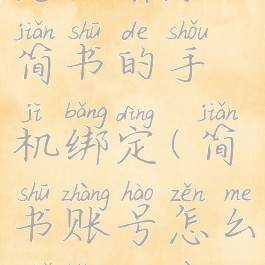 jiǎn shū de shǒu
简书的手
jī bǎng dìng jiǎn
机绑定(简
shū zhàng hào zěn me
书账号怎么